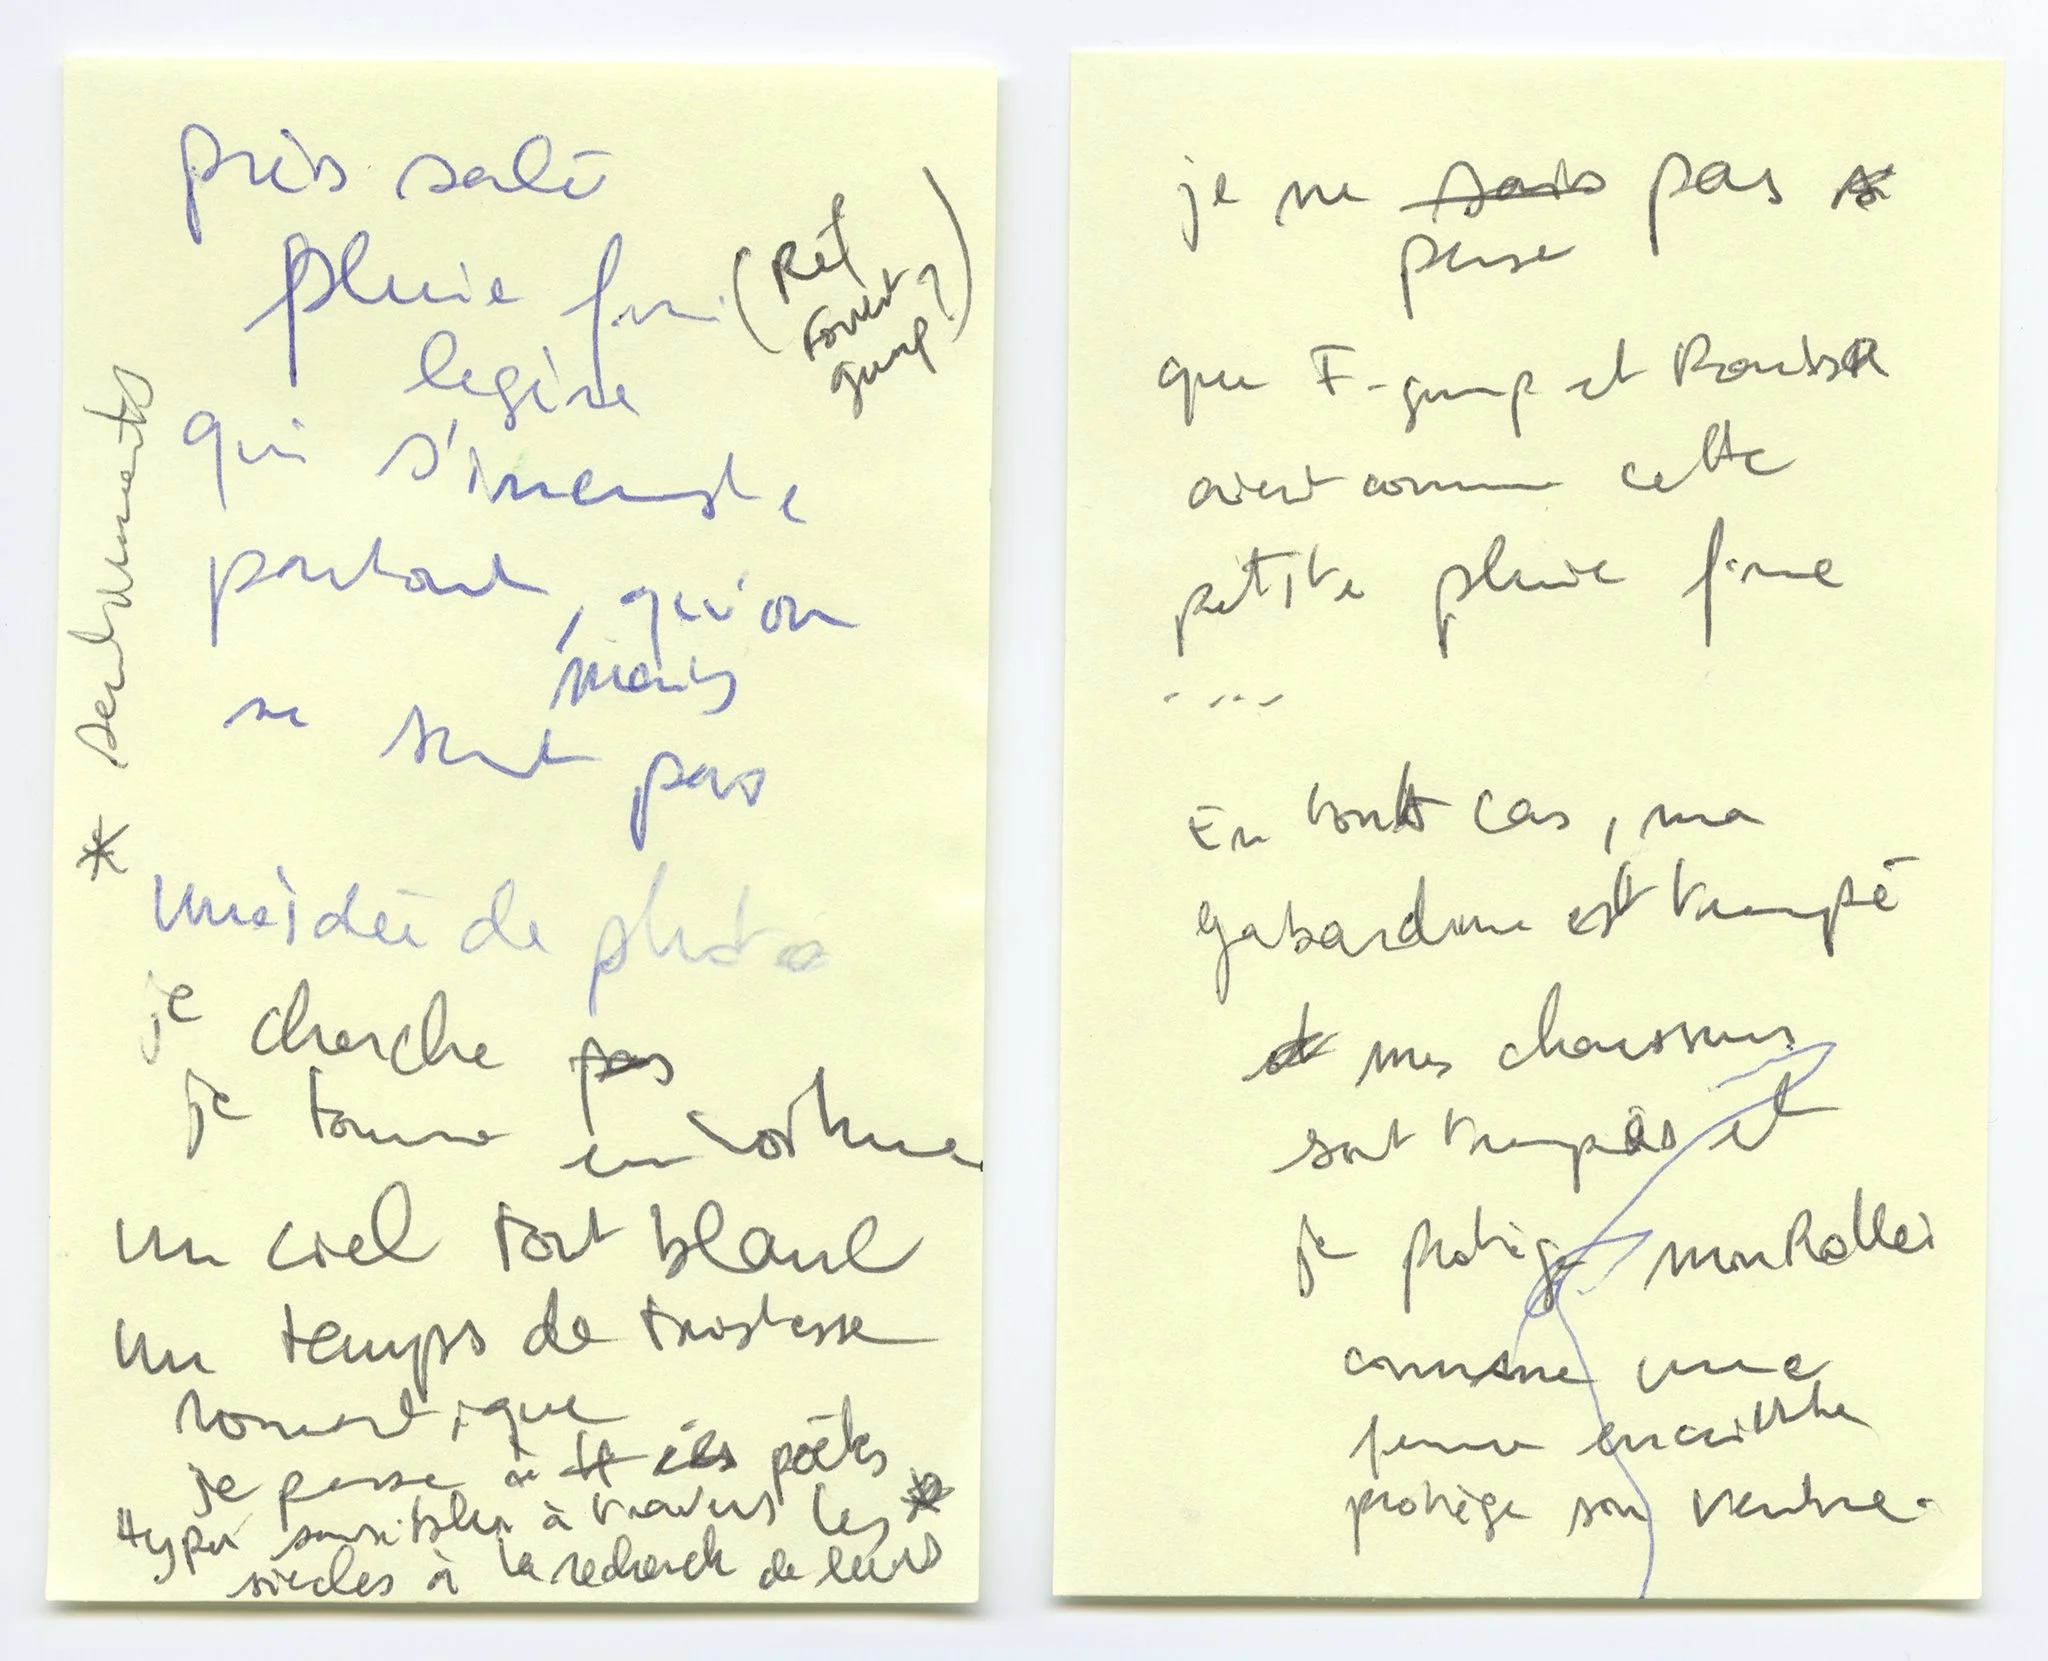 près salé
pluie fine
(Réf
Forrest
gump)
legère
qui s'incruste
partout, qu'on
mais
ne sent pas
une idée de photo
je cherche pas
je tourne en voiture
un ciel tout blanc
un temps de tristesse
romantique
je pense à ces poètes
Hyper sensibles à travers les *
siècles à la recherche de leurs
* sentiments
je ne sais pas
pense
que F-gump et
aient connu cette
petite pluie fine
....
En tout cas, ma
gabardine est trempé
et mes chaussures
sont trempés et
je protège mon Rollei
comme une
femme enceinte
protège son ventre.